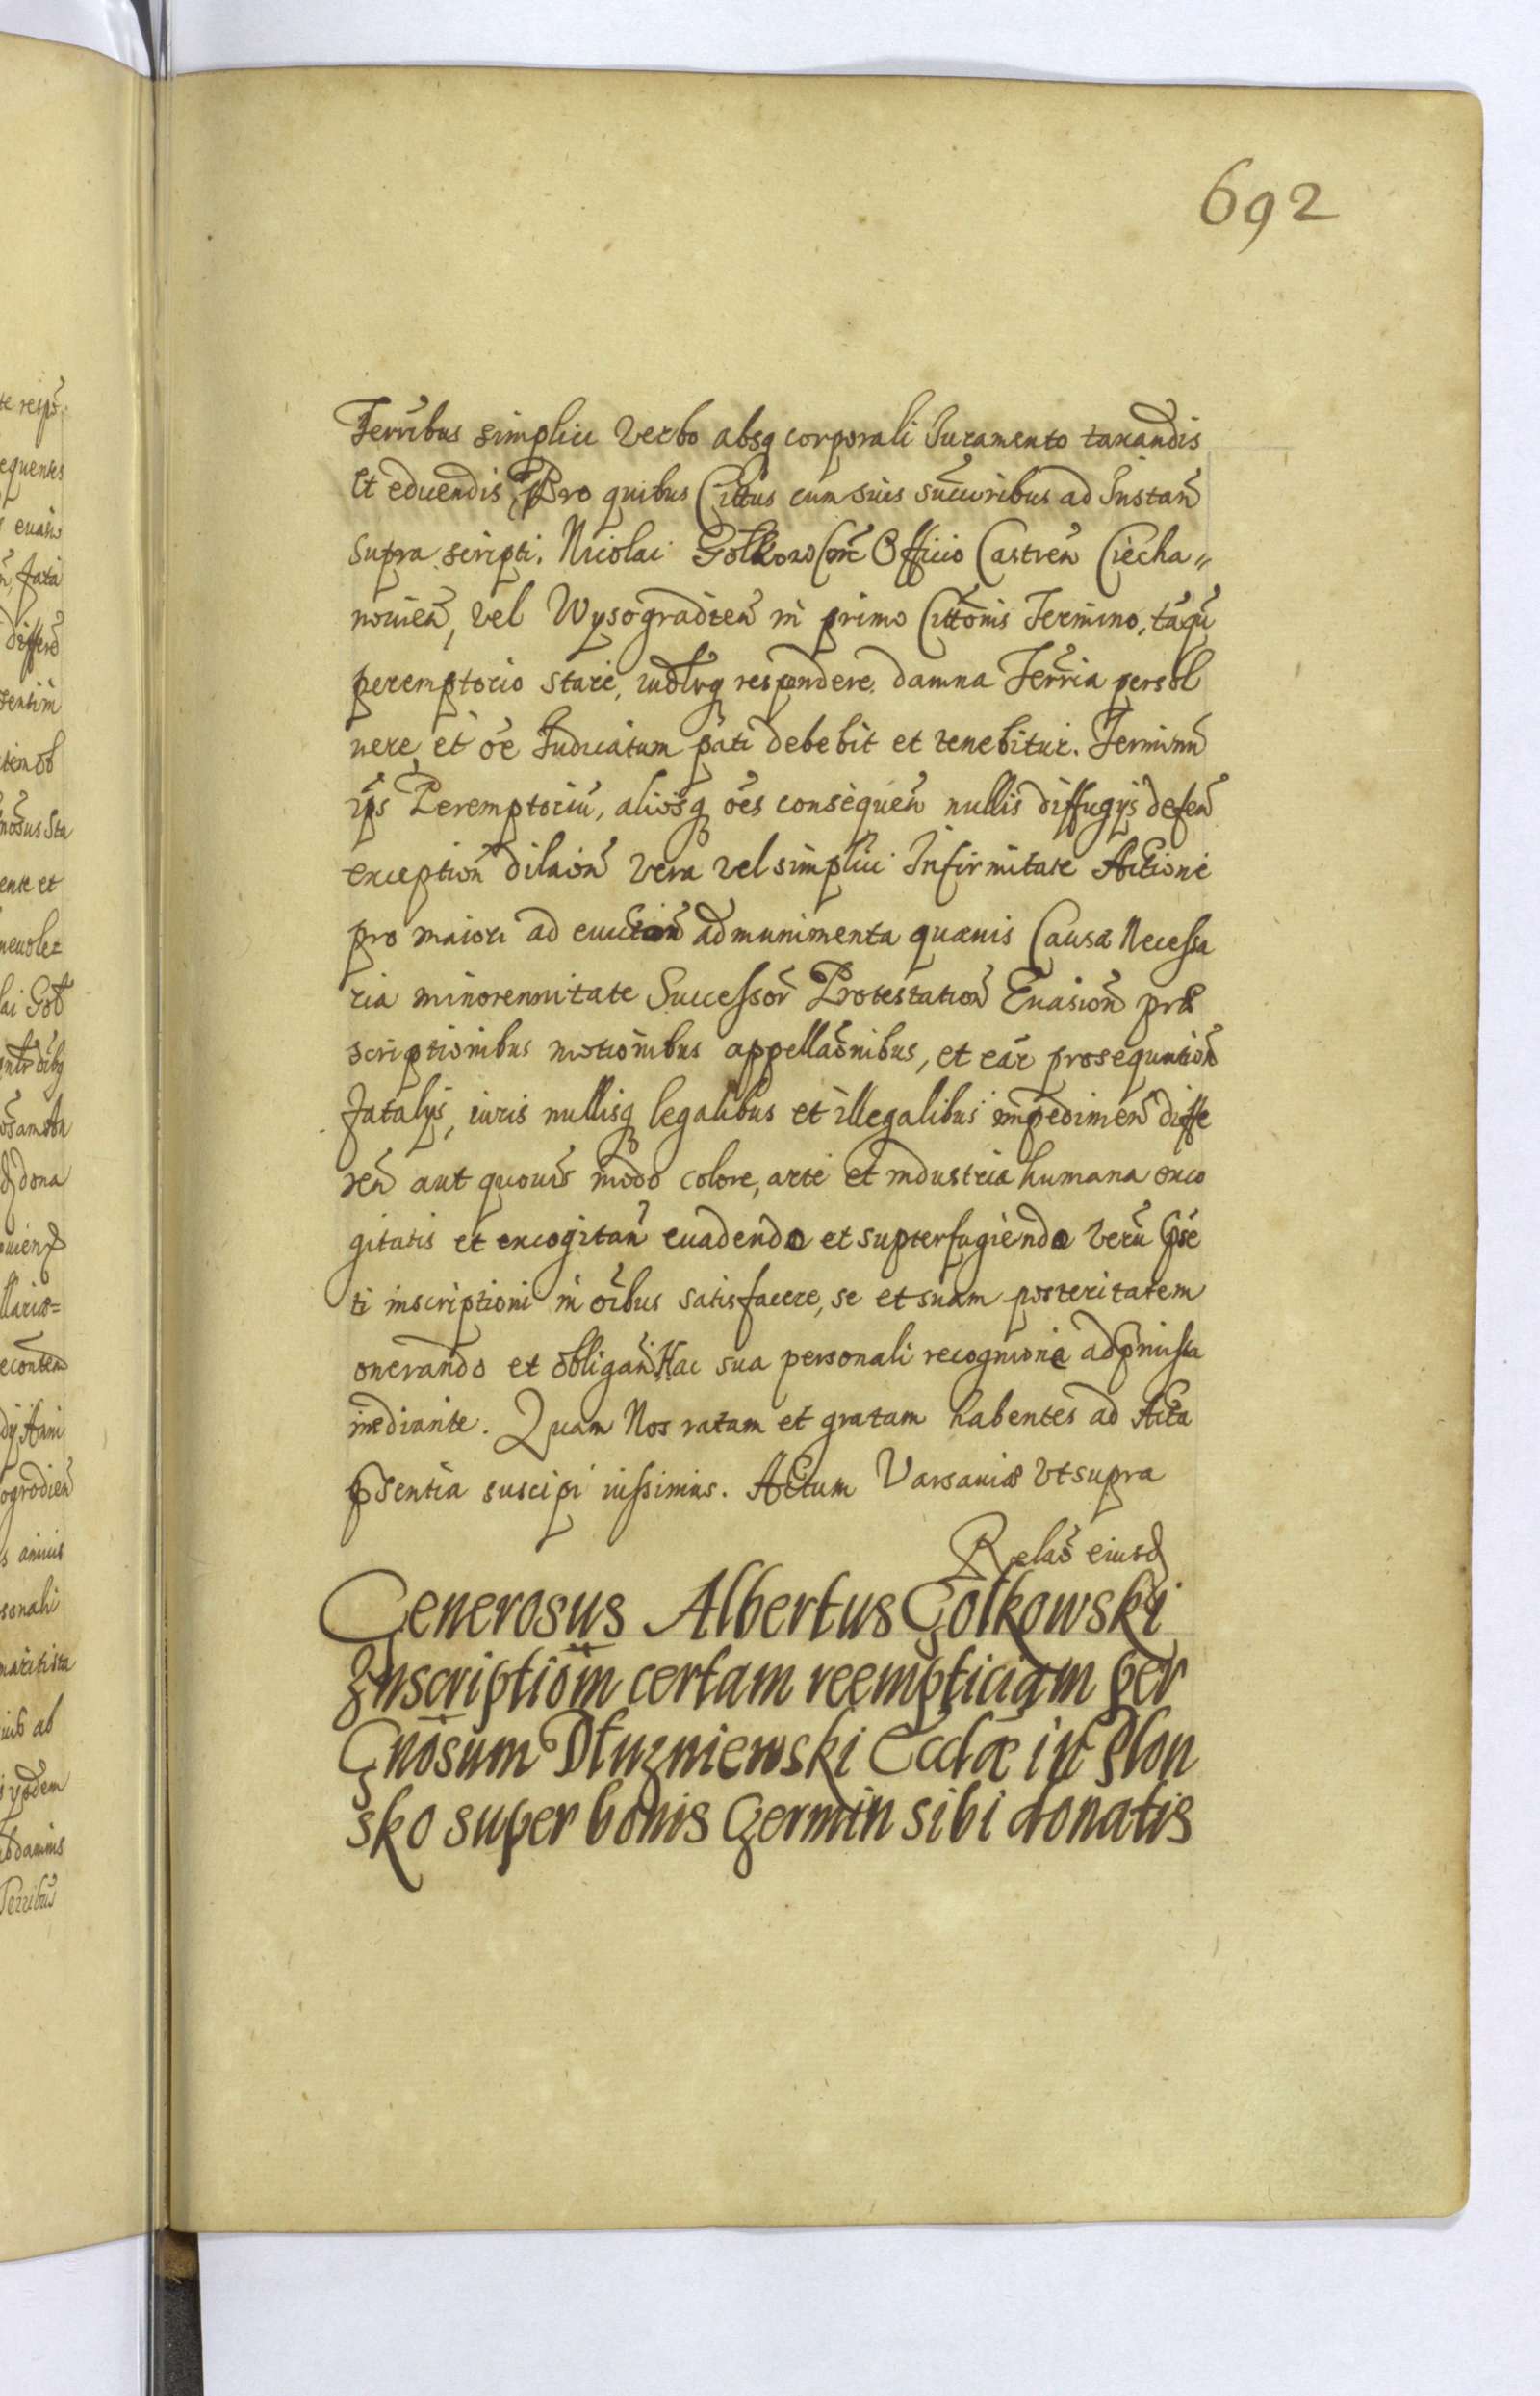 692
Terribus simplici verbo absq corporali Iuramento taxandis
et educendis, Pro quibus Cittus cum suis succoribus ad Instan
supra scripti. Nicolai Golkows Corā Officio Castren Ciecha„
novien, vel Wysogradien in primo Cittonis Termino, taqu
peremptorio stare, iudlrq respondere. damna Terria persol
uere, et oe Iudicatum pati debebit et tenebitur. Terminu
ips Peremptoriu, aliosq oes consequen nullis diffugijs defen
exception dilaon vera vel simplici Infirmitate Actione
pro maiori ad euiction ad munimenta quæuis Causa Necessa
ria minorennitate Successor Protestation Euasion præ
scriptionibus motionibus appellaonibus, et ear prosequution
fatalijs, iuris nullisq legalibus et illegalibus impedimen diffe
ren aut quouis modo colore, arte et industria humana exco
gitatis et excogitan euadendo et supterfugiendo veru pse
ti inscriptioni in oibus satisfacere, se et suam posteritatem
onerando et obligan Hac sua personali recognicione ad pmissa
mediante. Quam Nos ratam et gratam habentes ad Acta
psentia suscipi iussimus. Actum Varsauiæ vt supra
Relao eiusd
Generosus Albertus Gołkowski
Inscriptiom certam reempticiam per
Gnosum Dłuzniewski Ecclæ in Plon
sko super bonis Germin sibi donatis